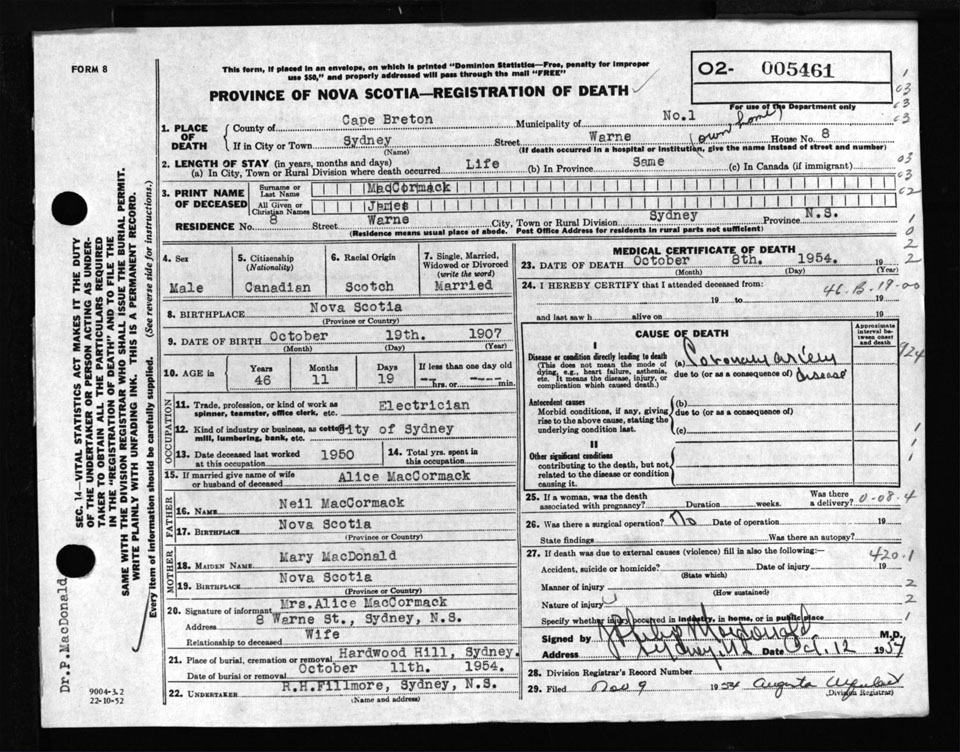 FORM 8
This form, if placed in an envelope, on which is printed "Dominion Statistics—Free, penalty for improper
use $50," and properly addressed will pass through the mail "FREE"
02- 005461
PROVINCE OF NOVA SCOTIA—REGISTRATION OF DEATH
For use of the Department only
1. PLACE OF DEATH
County of Cape Breton Municipality of No.1
If in City or Town Sydney Street Warne (own home) House No. 8
(Name) (If death occurred in a hospital or institution, give the name instead of street and number)
2. LENGTH OF STAY (in years, months and days)
(a) In City, Town or Rural Division where death occurred Life (b) In Province Same (c) In Canada (if immigrant)
3. PRINT NAME OF DECEASED
Surname or Last Name MacCormack
All Given or Christian Names James
RESIDENCE No. 8 Street Warne City, Town or Rural Division Sydney Province N.S.
(Residence means usual place of abode. Post Office Address for residents in rural parts not sufficient)
4. Sex
Male
5. Citizenship (Nationality)
Canadian
6. Racial Origin
Scotch
7. Single, Married, Widowed or Divorced (write the word)
Married
8. BIRTHPLACE Nova Scotia
(Province or Country)
9. DATE OF BIRTH October 19th. 1907
(Month) (Day) (Year)
10. AGE in Years Months Days If less than one day old
46 11 19 -- hrs. or --- min.
OCCUPATION
11. Trade, profession, or kind of work as spinner, teamster, office clerk, etc. Electrician
12. Kind of industry or business, as cotton mill, lumbering, bank, etc. City of Sydney
13. Date deceased last worked at this occupation 1950
14. Total yrs. spent in this occupation
15. If married give name of wife or husband of deceased Alice MacCormack
FATHER
16. NAME Neil MacCormack
17. BIRTHPLACE Nova Scotia
(Province or Country)
MOTHER
18. MAIDEN NAME Mary MacDonald
19. BIRTHPLACE Nova Scotia
(Province or Country)
20. Signature of informant Mrs.Alice MacCormack
Address 8 Warne St., Sydney, N.S.
Relationship to deceased Wife
21. Place of burial, cremation or removal Hardwood Hill, Sydney.
Date of burial or removal October 11th. 1954.
22. UNDERTAKER R.H.Fillmore, Sydney, N.S.
(Name and address)
MEDICAL CERTIFICATE OF DEATH
23. DATE OF DEATH October 8th. 1954. 19
(Month) (Day) (Year)
24. I HEREBY CERTIFY that I attended deceased from:
46.B.19-00
19 to 19
and last saw h alive on 19
CAUSE OF DEATH
Approximate interval between onset and death
I
Disease or condition directly leading to death
(This does not mean the mode of dying, e.g., heart failure, asthenia, etc. It means the disease, injury, or complication which caused death.)
(a) Coronary artery
due to (or as a consequence of) disease
924
Antecedent causes
Morbid conditions, if any, giving rise to the above cause, stating the underlying condition last.
(b)
due to (or as a consequence of)
(c)
II
Other significant conditions
contributing to the death, but not related to the disease or condition causing it.
25. If a woman, was the death associated with pregnancy? Duration weeks. Was there a delivery?
0-08.4
26. Was there a surgical operation? No Date of operation 19
State findings Was there an autopsy?
27. If death was due to external causes (violence) fill in also the following:—
420.1
Accident, suicide or homicide? Date of injury 19
(State which)
Manner of injury
(How sustained)
Nature of injury
Specify whether injury occurred in industry, in home, or in public place
Signed by Macdonald M.D.
Address Sydney, NS Date Oct. 12 1954
28. Division Registrar's Record Number
29. Filed Nov 9 1954 Augusta
(Division Registrar)
SEC. 14—VITAL STATISTICS ACT MAKES IT THE DUTY
OF THE UNDERTAKER OR PERSON ACTING AS UNDER-
TAKER TO OBTAIN ALL THE PARTICULARS REQUIRED
IN THE "REGISTRATION OF DEATH" AND TO FILE THE
SAME WITH THE DIVISION REGISTRAR WHO SHALL ISSUE THE BURIAL PERMIT.
WRITE PLAINLY WITH UNFADING INK. THIS IS A PERMANENT RECORD.
Every item of information should be carefully supplied. (See reverse side for instructions.)
Dr P.MacDonald
9004-3.2
22-10-52